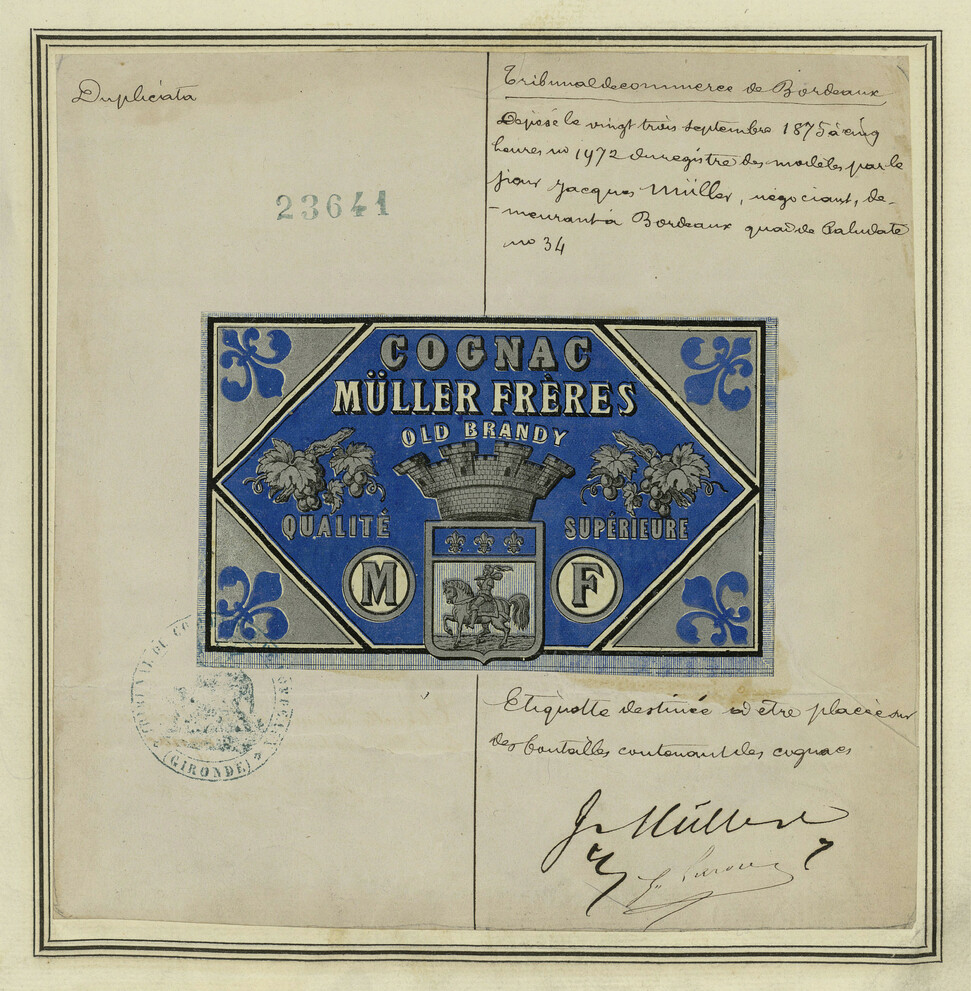 Duplicata
23641
Tribunal de commerce de Bordeaux
Déposé le vingt trois septembre 1875 à cinq
heures no 1972 du registre des modèles par le
sieur Jacques Müller, négociant, de-
-meurant à Bordeaux quai de Paludate
no 34
COGNAC
MÜLLER FRÈRES
OLD BRANDY
QUALITÉ SUPÉRIEURE
M F
TRIBUNAL DE
(GIRONDE)
Etiquette destinée à être placée sur
des bouteilles contenant des cognacs
J. Müller